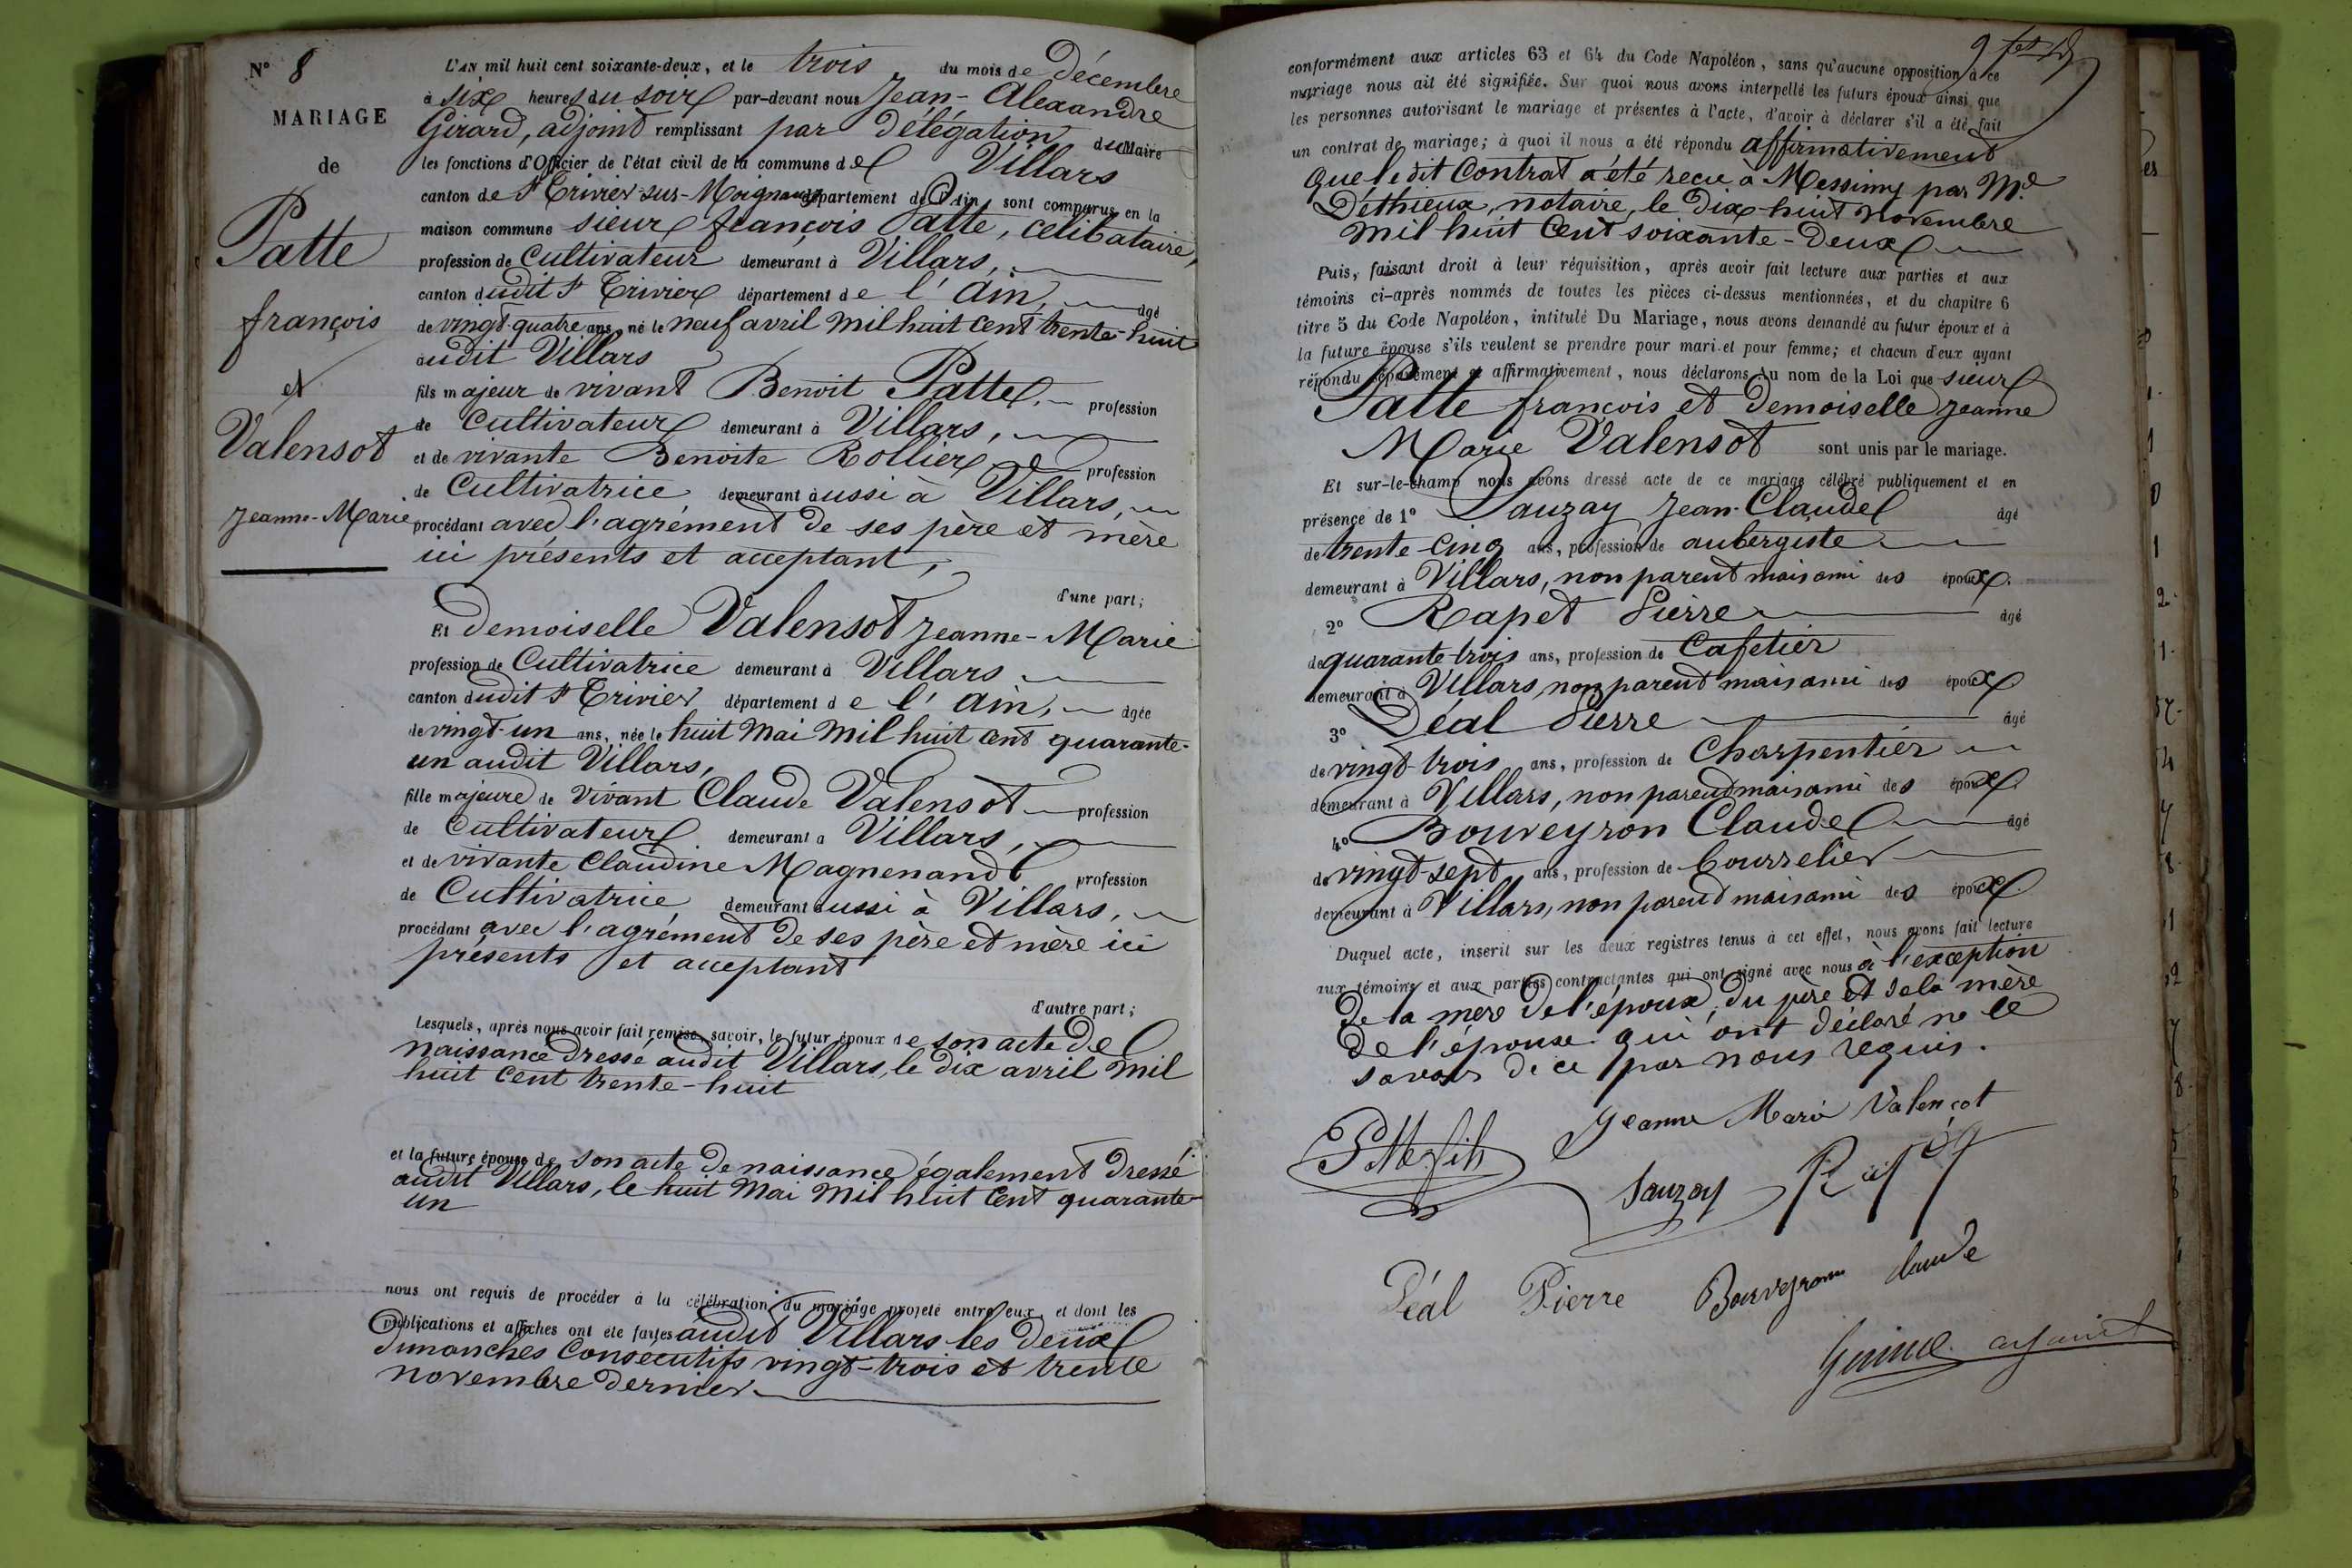 N° 8
MARIAGE
de
Patte
françois
et
Valensot
Jeanne-Marie
L'AN mil huit cent soixante-deux, et le trois du mois de Décembre
à six heures du soir par-devant nous Jean-Alexandre
Girard, adjoint remplissant par délégation du Maire
les fonctions d'Officier de l'état civil de la commune de Villars
canton de St Trivier-sur-Moignans département de l'Ain sont comparus en la
maison commune sieur françois Patte, célibataire,
profession de Cultivateur demeurant à Villars,
canton dudit St Trivier département de l'Ain, âgé
de vingt-quatre ans, né le neuf avril mil huit cent trente-huit
audit Villars
fils majeur de vivant Benoit Patte, profession
de Cultivateur demeurant à Villars,
et de vivante Benoite Rollier profession
de Cultivatrice demeurant aussi à Villars,
procédant avec l'agrément de ses père et mère
ici présents et acceptant,
d'une part;
Et demoiselle Valensot Jeanne-Marie
profession de Cultivatrice demeurant à Villars
canton dudit St Trivier département de l'Ain, âgée
de vingt-un ans, née le huit Mai mil huit cent quarante-
un audit Villars,
fille majeure de vivant Claude Valensot profession
de Cultivateur demeurant a Villars,
et de vivante Claudine Magnenand profession
de Cultivatrice demeurant aussi à Villars,
procédant avec l'agrément de ses père et mère ici
présents et acceptant
d'autre part;
Lesquels, après nous avoir fait remise, savoir, le futur époux de son acte de
naissance dressé audit Villars, le dix avril mil
huit cent trente-huit
et la future épouse de son acte de naissance également dressé
audit Villars, le huit Mai mil huit cent quarante-
un
nous ont requis de procéder à la célébration du mariage projeté entre eux, et dont les
publications et affiches ont été faites audit Villars les deux
dimanches consécutifs vingt-trois et trente
novembre dernier
conformément aux articles 63 et 64 du Code Napoléon, sans qu'aucune opposition à ce
mariage nous ait été signifiée. Sur quoi nous avons interpellé les futurs époux ainsi que
les personnes autorisant le mariage et présentes à l'acte, d'avoir à déclarer s'il a été fait
un contrat de mariage; à quoi il nous a été répondu affirmativement
que ledit Contrat a été reçu à Messimy par Me
Déthieux, notaire, le Dix-huit novembre
mil huit Cent soixante-Deux
Puis, faisant droit à leur réquisition, après avoir fait lecture aux parties et aux
témoins ci-après nommés de toutes les pièces ci-dessus mentionnées, et du chapitre 6
titre 5 du Code Napoléon, intitulé Du Mariage, nous avons demandé au futur époux et à
la future épouse s'ils veulent se prendre pour mari et pour femme; et chacun d'eux ayant
répondu séparément et affirmativement, nous déclarons Au nom de la Loi que sieur
Patte françois et Demoiselle Jeanne
Marie Valensot sont unis par le mariage.
Et sur-le-champ nous avons dressé acte de ce mariage célébré publiquement et en
présence de 1° Sauzay Jean-Claude âgé
de trente-cinq ans, profession de aubergiste
demeurant à Villars, non parent mais ami des époux.
2° Rapet Pierre âgé
de quarante-trois ans, profession de Cafetier
demeurant à Villars, non parent mais ami des époux
3° Déal Pierre âgé
de vingt-trois ans, profession de Charpentier
demeurant à Villars, non parent mais ami des époux
4° Bouveyron Claude âgé
de vingt-sept ans, profession de Bourrelier
demeurant à Villars, non parent mais ami des époux
Duquel acte, inscrit sur les deux registres tenus à cet effet, nous avons fait lecture
aux témoins et aux parties contractantes qui ont signé avec nous à l'exception
de la mère de l'époux, du père et de la mère
de l'épouse qui ont déclaré ne le
savoir de ce par nous requis.
Jeanne Marie Valençot
Sauzay
Déal Pierre Bouveyron claude